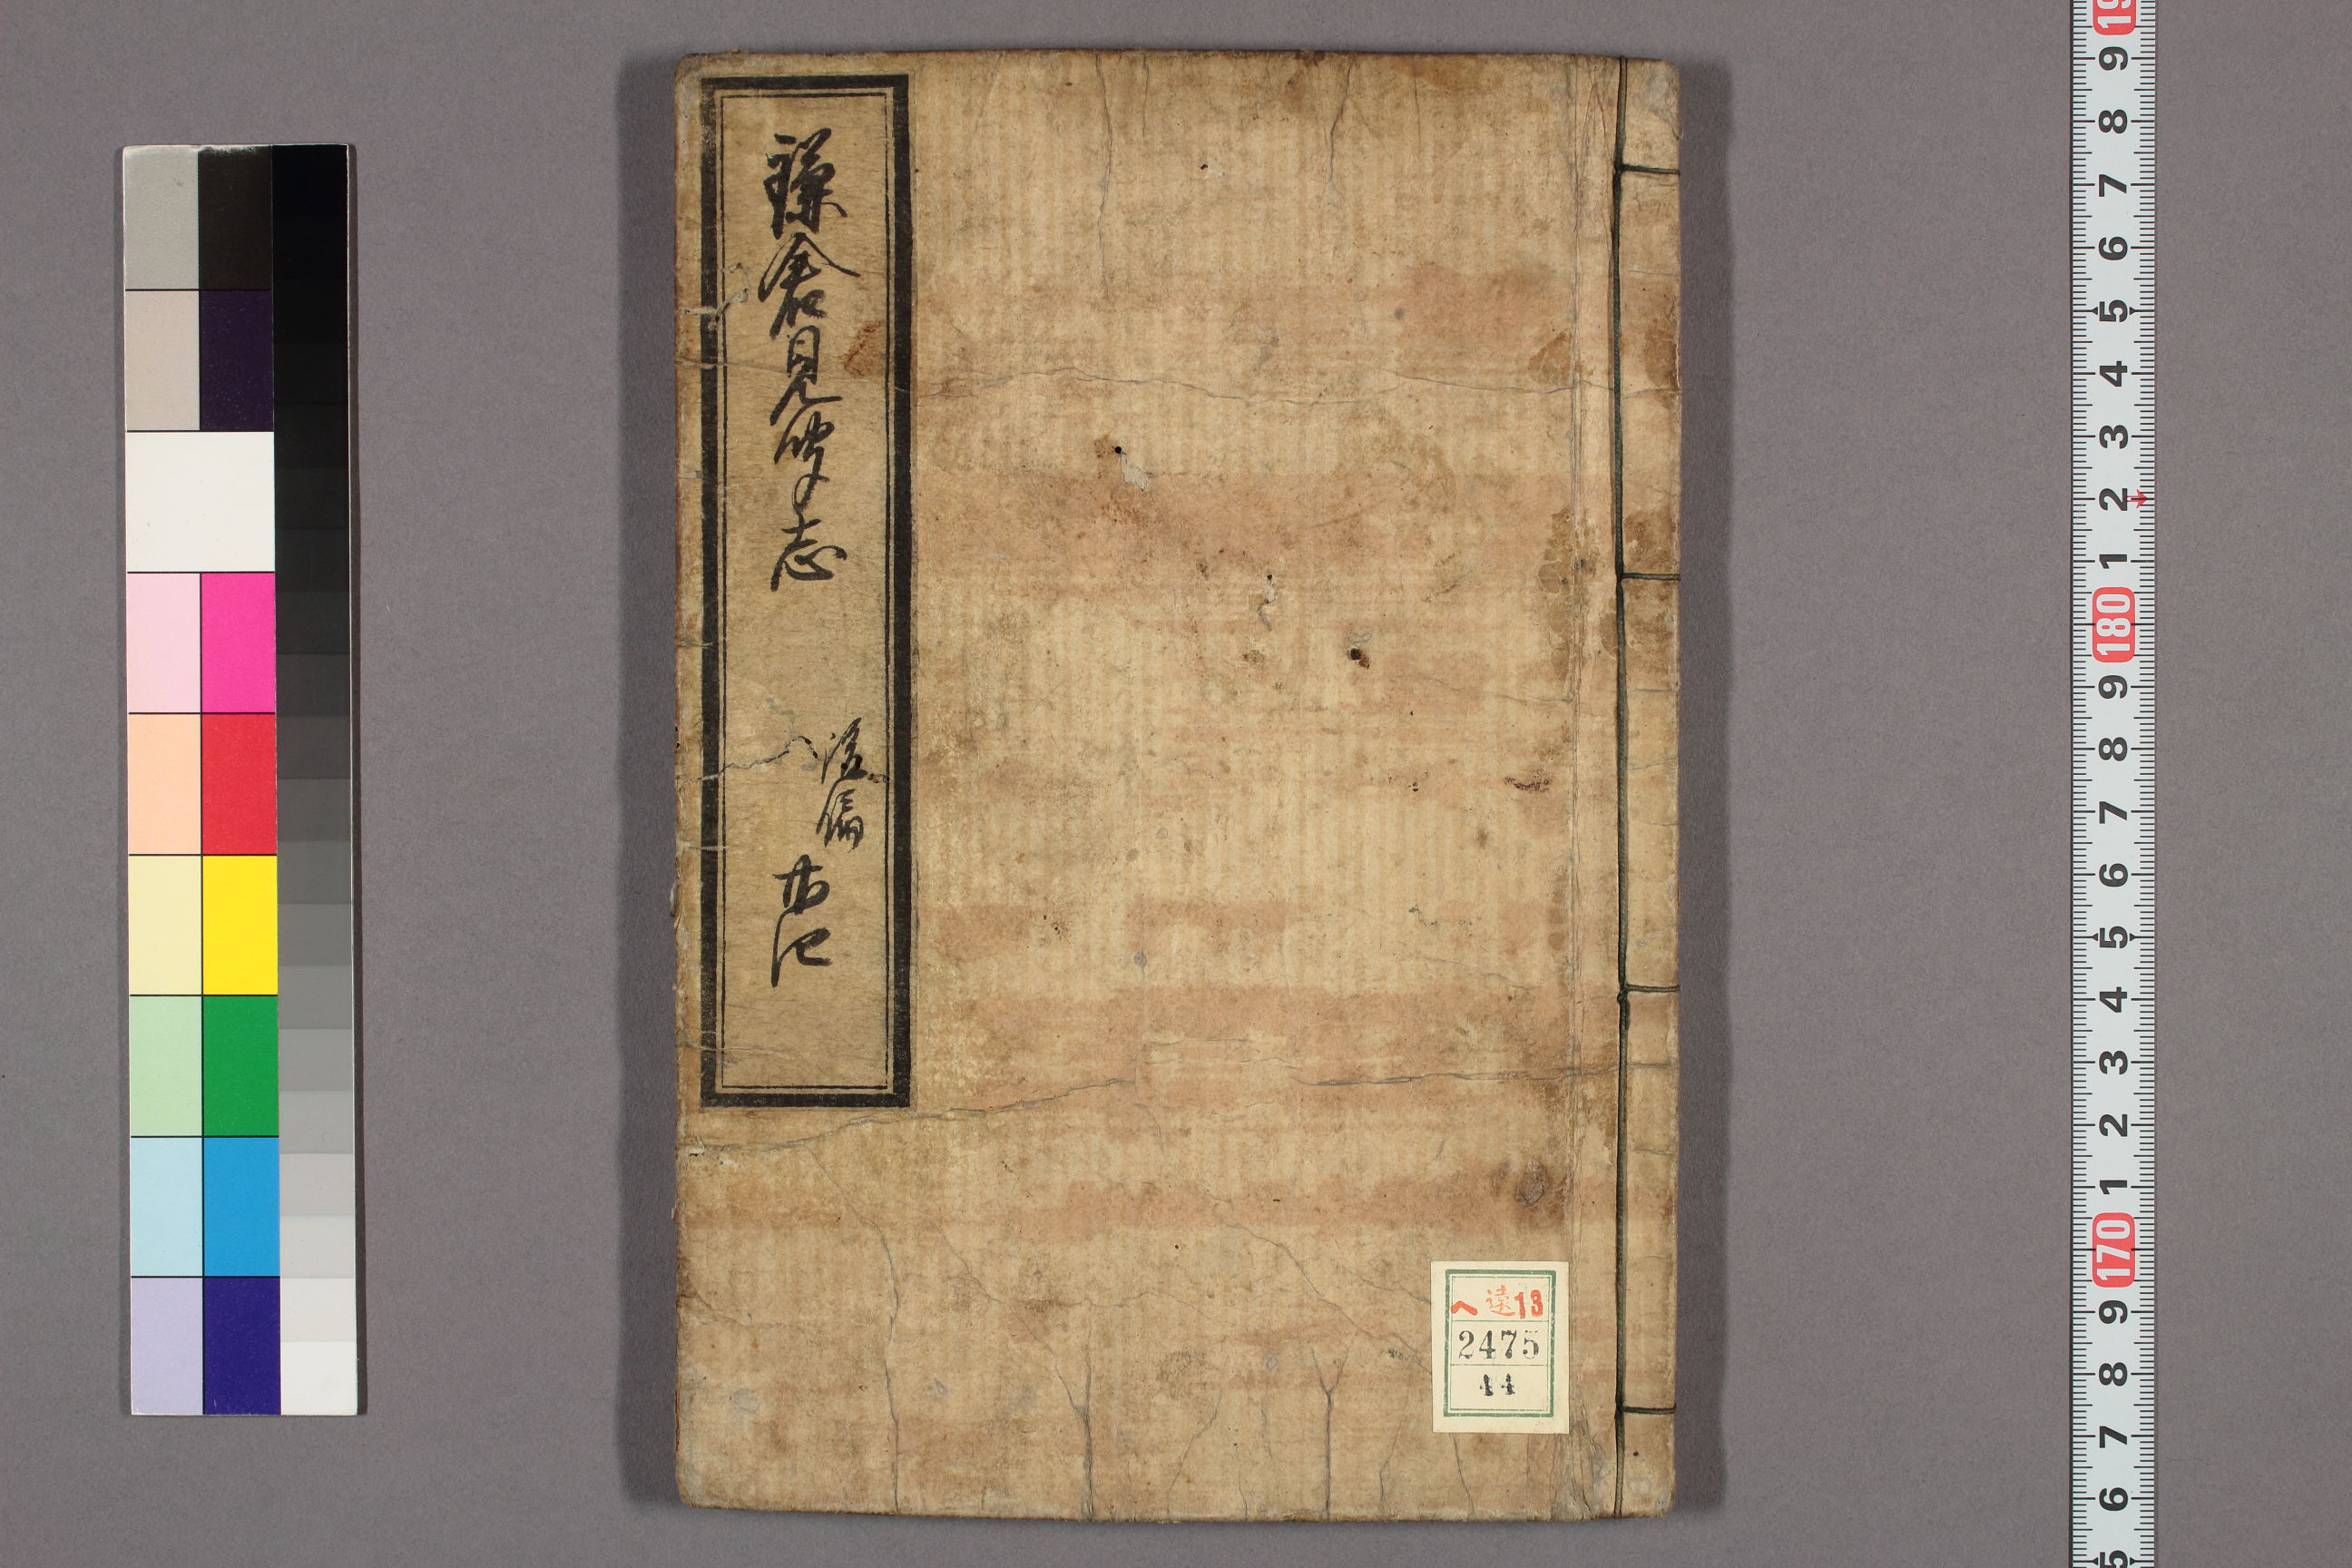 鎌倉見聞志
後編
へ 遠13
2475
44
9
8
7
6
5
4
3
2
1
180
9
8
7
6
5
4
3
2
1
170
9
8
7
6
5